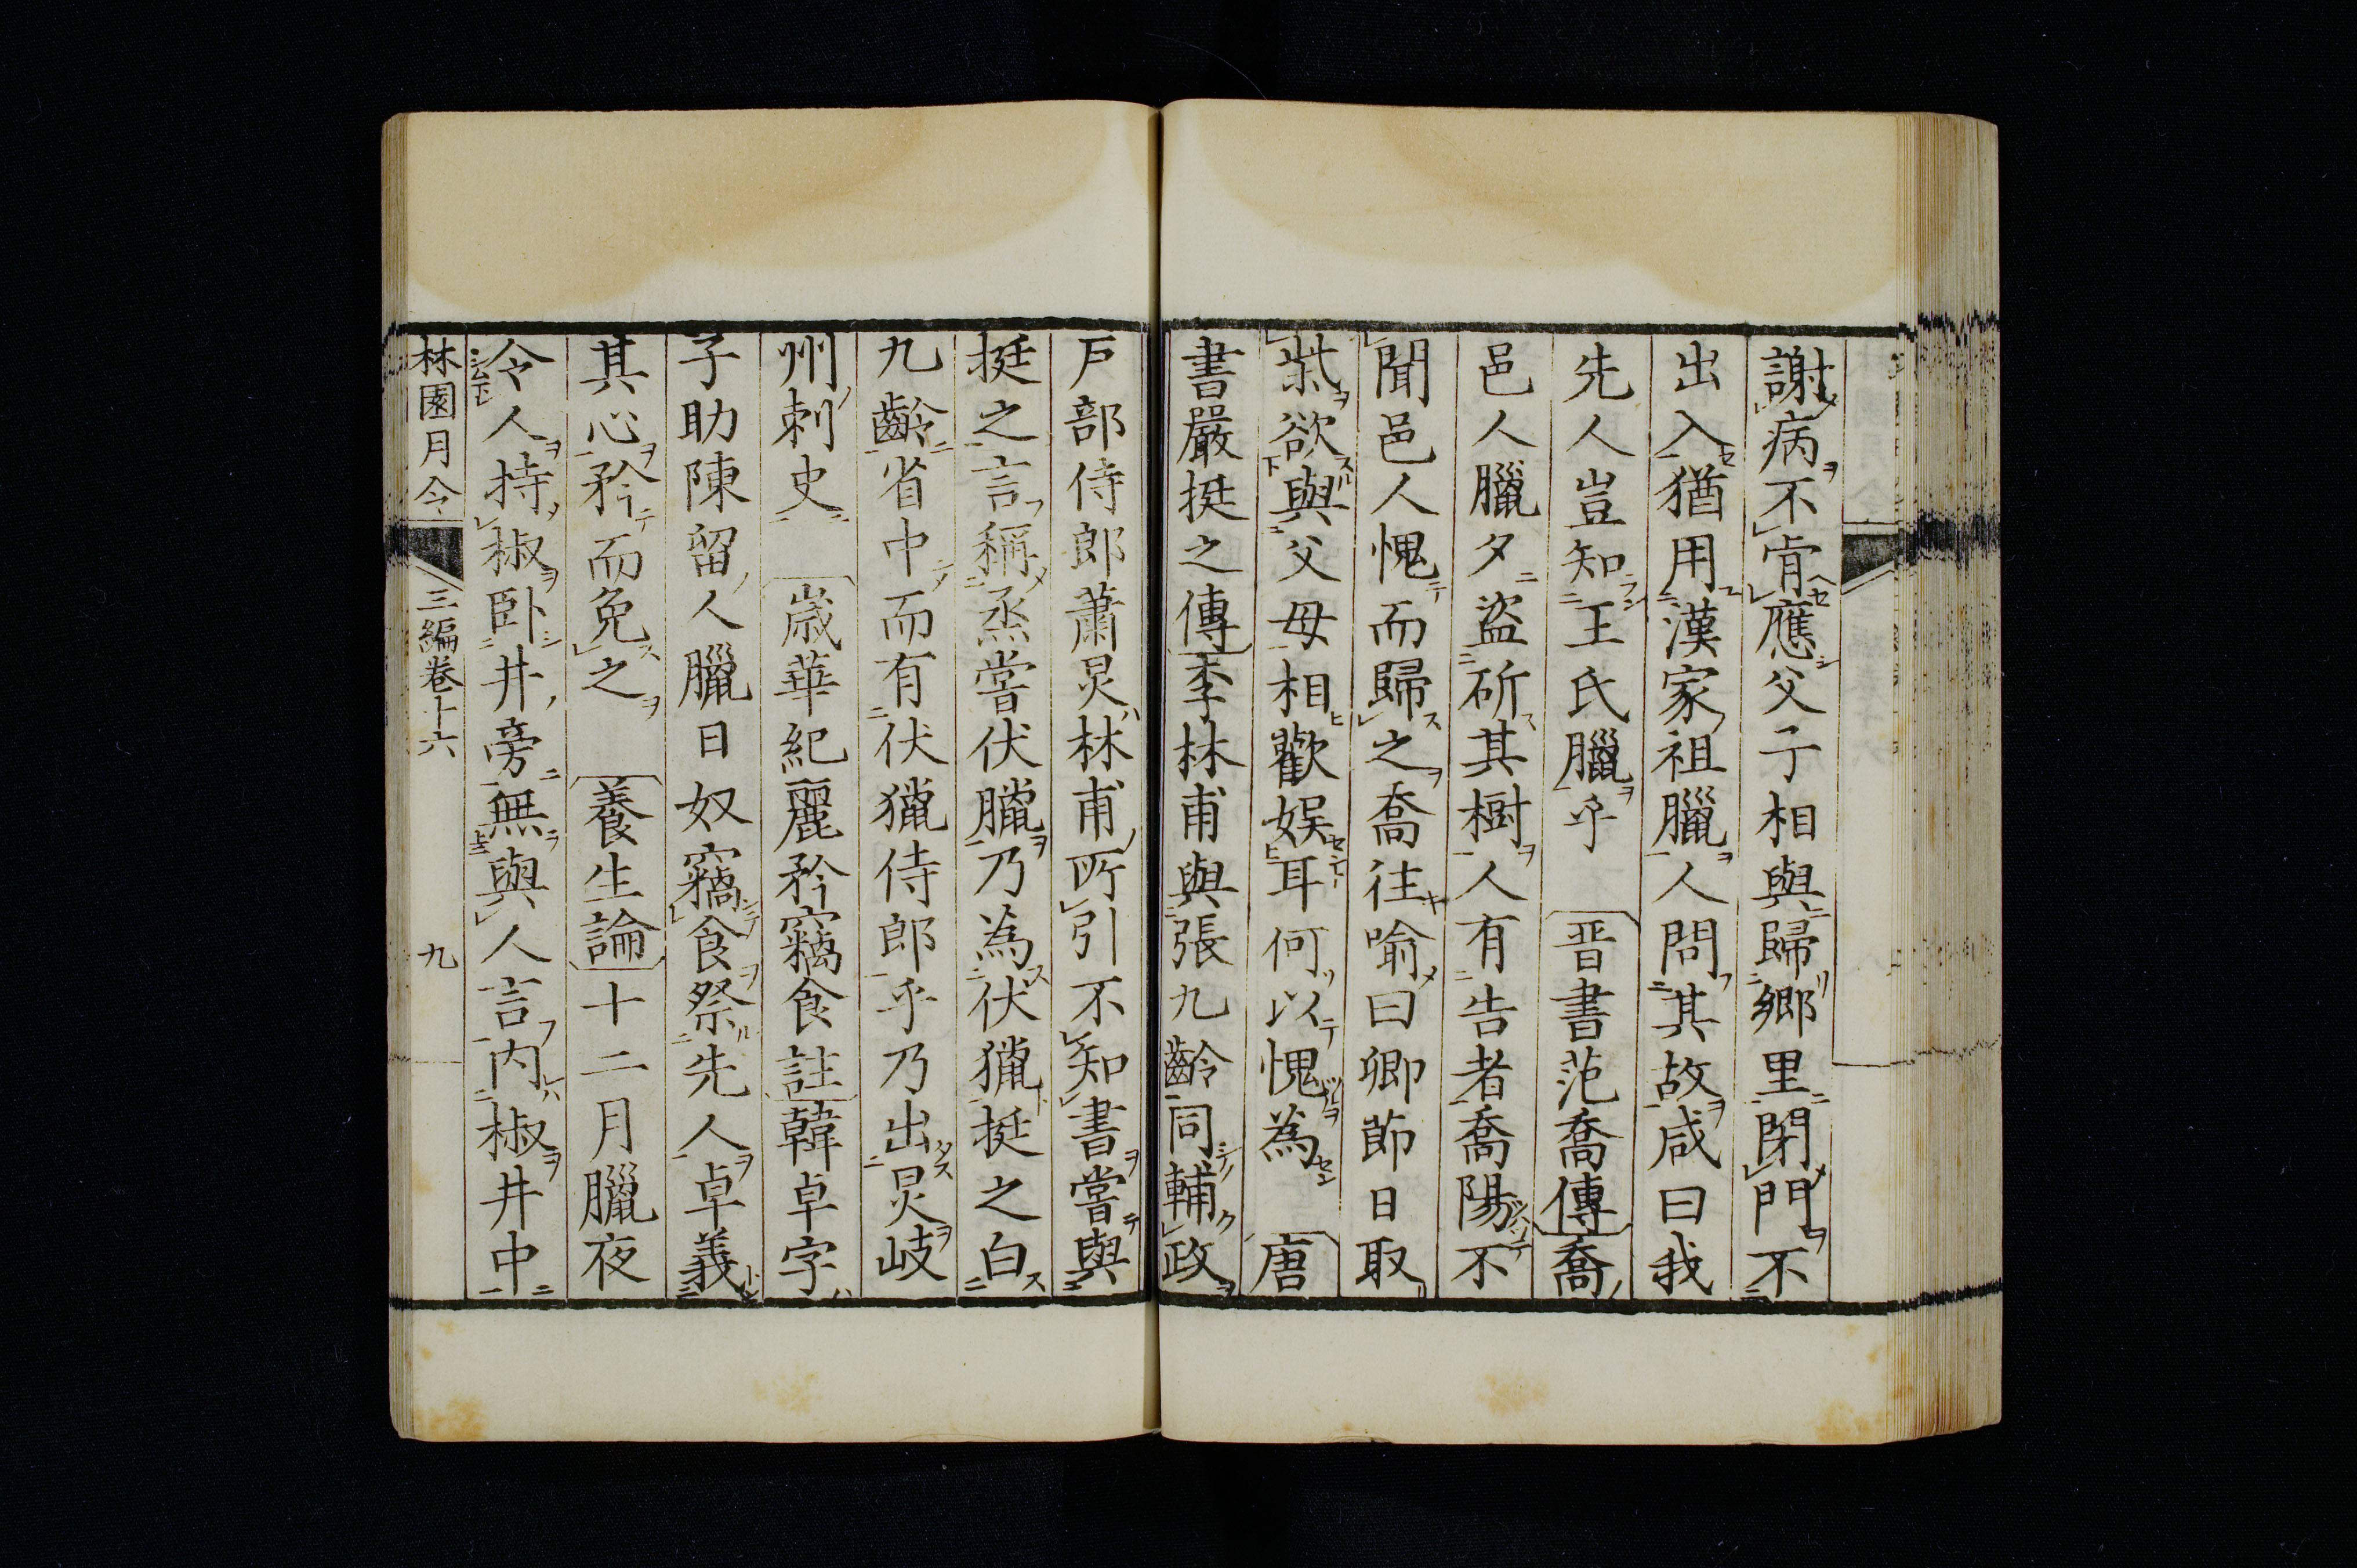 謝病不肯應父子相與歸鄉里閉門不
出入猶用漢家祖臘人問其故咸曰我
先人豈知王氏臘乎 晋書范喬傳喬
邑人臘夕盜斫其樹人有告者喬陽不
聞邑人愧而歸之喬往喻曰卿節日取
柴欲與父母相歡娛耳何以愧為 唐
書嚴挺之傳李林甫與張九齡同輔政
戶部侍郎蕭炅林甫所引不知書嘗與
挺之言稱烝嘗伏臘乃為伏獵挺之白
九齡省中而有伏獵侍郎乎乃出炅岐
州刺史 歲華紀麗矜竊食註韓卓字
子助陳留人臘日奴竊食祭先人卓義
其心矜而免之 養生論十二月臘夜
令人持椒卧井旁無與人言內椒井中
林園月令 三編卷十六 九